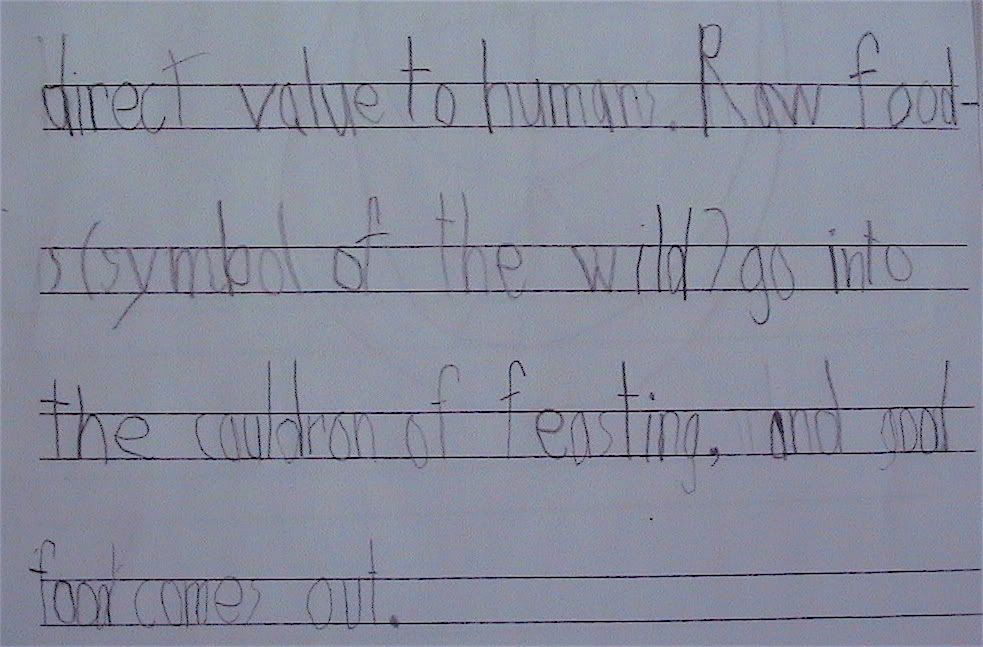 direct value to humans. Raw food-
s(symbol of the wild) go into
the cauldron of feasting, and good
food comes out.